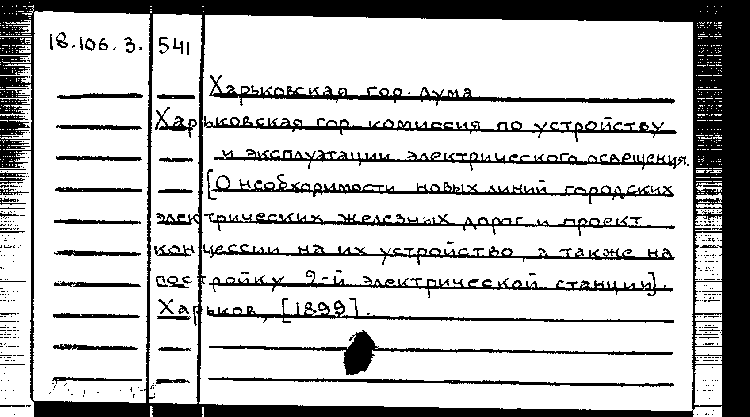 18.106.3. 541
Харьковская гор. дума
Харьковская гор. комиссия по устройству
и эксплуатации электрического освещения.
[О необходимости новых линий городских
электрических железных дорог и проект
концессии на их устройство, а также на
постройку 2-й электрической станции].
Харьков, [1899].